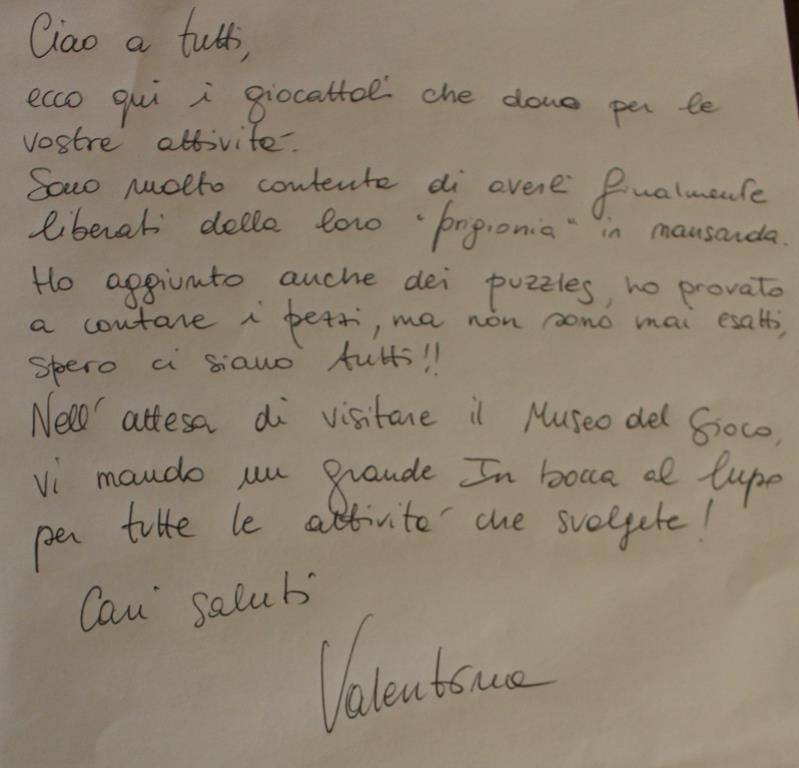 Ciao a tutti,
ecco qui i giocattoli che dono per le
vostre attività.
Sono molto contenta di averli finalmente
liberati dalla loro "prigionia" in mansarda.
Ho aggiunto anche dei puzzles, ho provato
a contare i pezzi, ma non sono mai esatti,
spero ci siano tutti!!
Nell'attesa di visitare il Museo del Gioco,
vi mando un grande In bocca al lupo
per tutte le attività che svolgete!
Cari saluti
Valentina